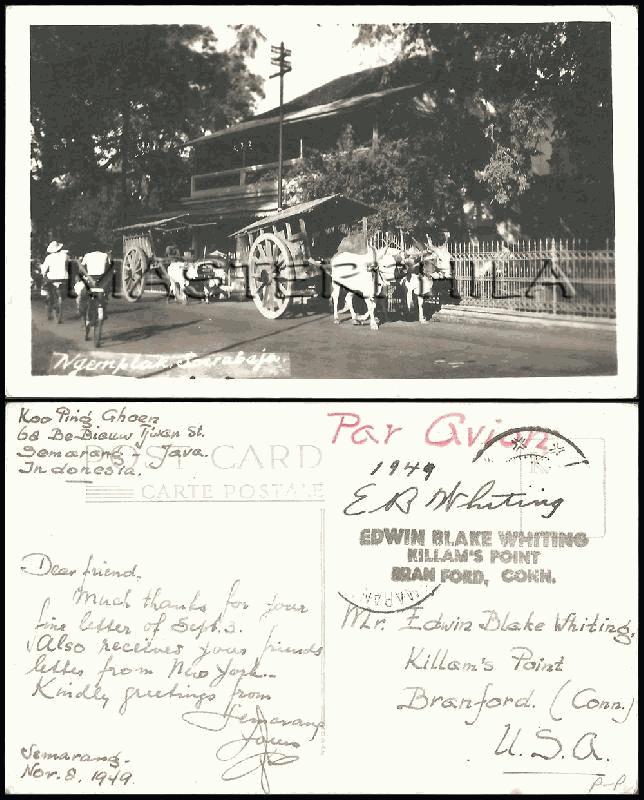 MASTERPHILA
Ngemplak Soerabaja.
Koo Ping Ghoen
68 De-Bieuw Tjwan St.
Semarang - Java.
Indonesia.
POST CARD
CARTE POSTALE
Par Avion
1949
E B Whiting
EDWIN BLAKE WHITING
KILLAM'S POINT
BRAN FORD, CONN.
Dear friend.
Much thanks for your
fine letter of Sept. 3.
Also received your friends
letter from New York.
Kindly greetings from
Semarang
Yours
Semarang.
Nov. 8. 1949.
Mr. Edwin Blake Whiting.
Killam's Point
Branford. (Conn.)
U.S.A.
P-P